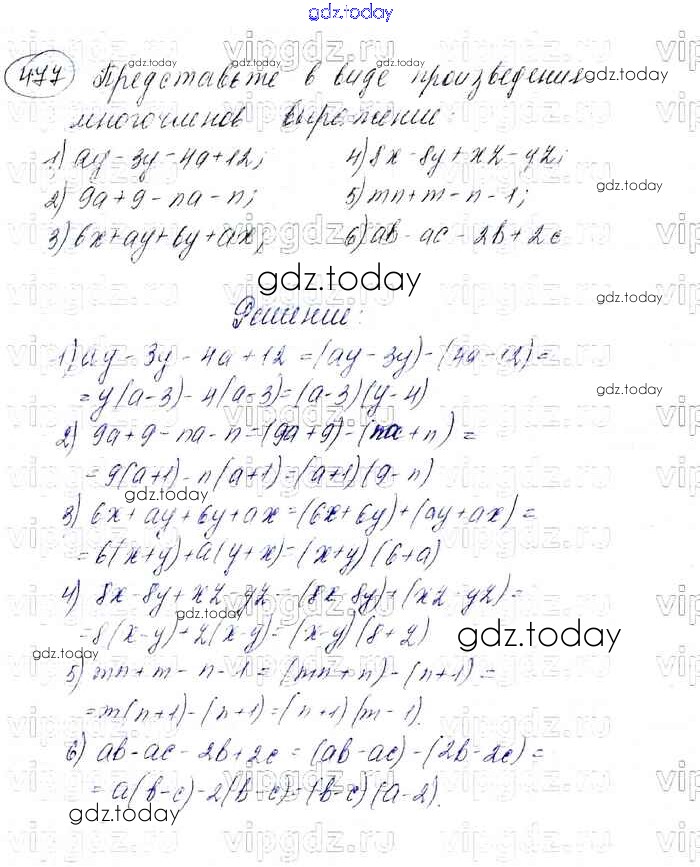 gdz.today
477 Представьте в виде произведения
многочленов выражение:
1) ay - 3y - 4a + 12; 4) 8x - 8y + xz - yz;
2) 9a + 9 - na - n; 5) mn + m - n - 1;
3) 6x + ay + 6y + ax; 6) ab - ac - 2b + 2c
gdz.today
Решение:
1) ay - 3y - 4a + 12 = (ay - 3y) - (4a - 12) =
= y(a - 3) - 4(a - 3) = (a - 3)(y - 4)
2) 9a + 9 - na - n = (9a + 9) - (na + n) =
= 9(a + 1) - n(a + 1) = (a + 1)(9 - n)
gdz.today
3) 6x + ay + 6y + ax = (6x + 6y) + (ay + ax) =
= 6(x + y) + a(y + x) = (x + y)(6 + a)
4) 8x - 8y + xz - yz = (8x - 8y) + (xz - yz) =
= 8(x - y) + z(x - y) = (x - y)(8 + z)
gdz.today
5) mn + m - n - 1 = (mn + n) - (n + 1) =
= m(n + 1) - (n + 1) = (n + 1)(m - 1).
6) ab - ac - 2b + 2c = (ab - ac) - (2b - 2c) =
= a(b - c) - 2(b - c) = (b - c)(a - 2).
gdz.today
vipgdz.ru